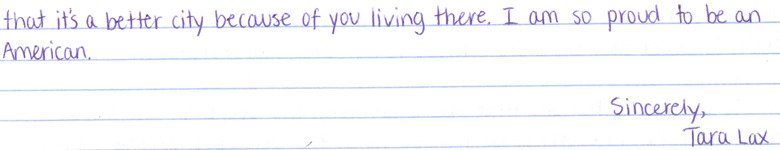 that it's a better city because of you living there. I am so proud to be an
American.
Sincerely,
Tara Lax